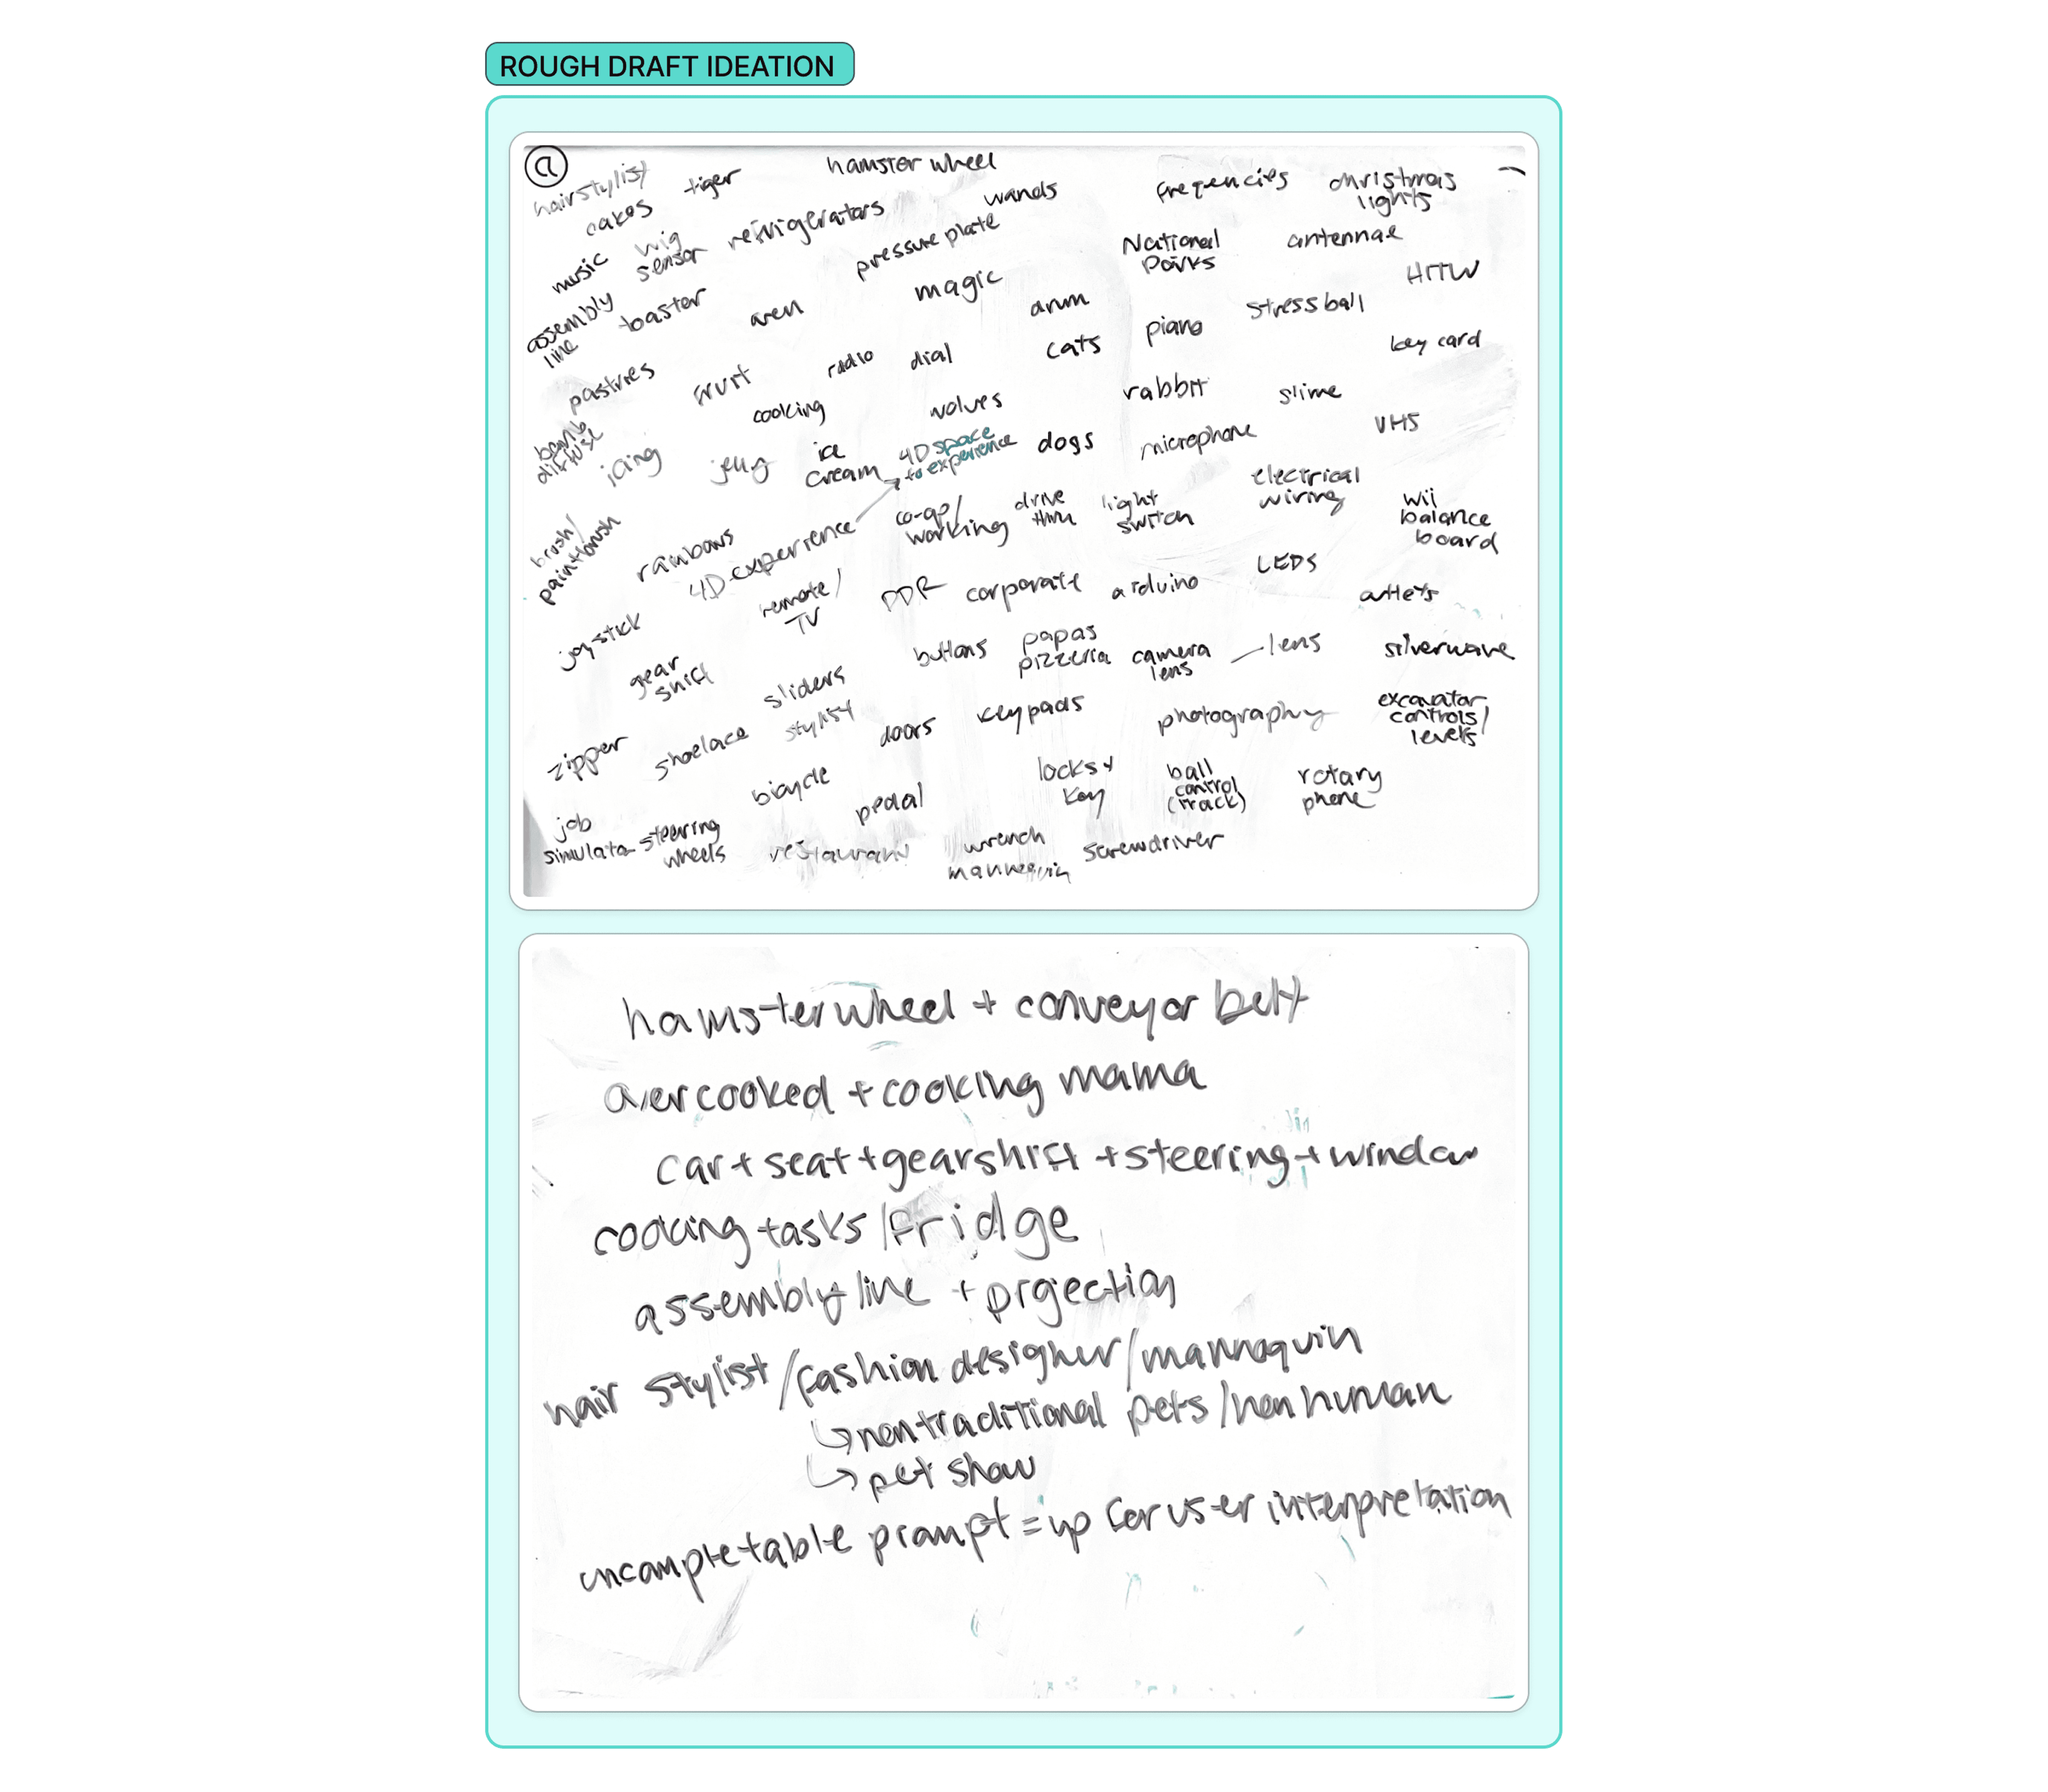 ROUGH DRAFT IDEATION
a
hairstylist
tiger
hamster wheel
cakes
wands
frequencies
christmas
lights
music
wig
sensor
refrigerators
pressure plate
National
Parks
antennae
HTTW
assembly
line
toaster
oven
magic
drum
piano
stressball
key card
pastries
fruit
radio
dial
cats
cooking
wolves
rabbit
slime
VHS
bomb
icing
jelly
ice
cream
4D space
to experience
dogs
microphone
electrical
wiring
wii
balance
board
brush/
paintbrush
rainbows
4D experience
co-op/
working
drive
thru
light
switch
LEDS
joystick
remote/
TV
DDR
corporate
arduino
outlets
gear
shift
sliders
buttons
papas
pizzeria
camera
lens
lens
silverwave
zipper
shoelace
stylist
doors
keypads
photography
excavator
controls/
levers
bicycle
pedal
locks +
key
ball
control
(track)
rotary
phone
job
simulator
steering
wheels
restaurant
wrench
mannequin
screwdriver
hamster wheel + conveyor belt
overcooked + cooking mama
car + seat + gearshift + steering + window
cooking tasks / fridge
assembly line + projection
hair stylist / fashion designer / mannaquin
↳ nontraditional pets / non human
↳ pet show
uncompletable prompt = up for user interpretation